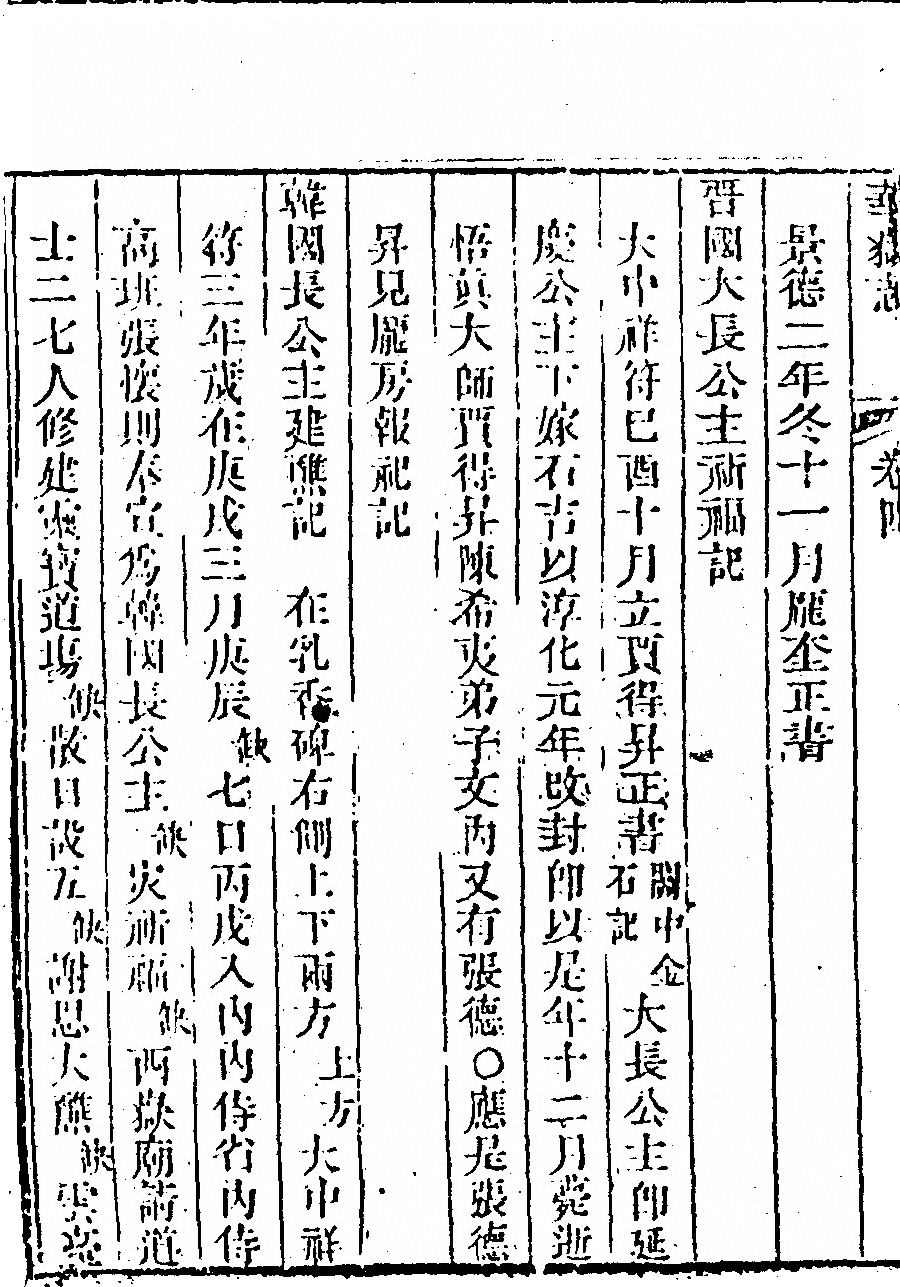 華嶽志 卷四
景德二年冬十一月龎奎正書
晋國大長公主祈福記
大中祥符巳酉十月立賈得昇正書關中金石記大長公主卽延
慶公主下嫁石吉以淳化元年改封卽以是年十二月薨逝
悟真大師賈得昇陳希夷弟子文內又有張德〇應是張德
昇兄龎房報祀記
韓國長公主建醮記 在乳香碑右側上下兩方上方大中祥
符三年歲在庚戌三月庚辰缺七日丙戌入內內侍省內侍
高班張懷則奉宣爲韓國長公主缺災祈福缺西嶽廟請道
士二七人修建靈寶道場缺散日設五缺謝恩大醮缺雲臺